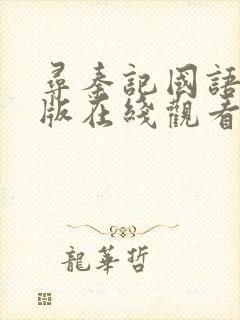 尋秦記國語
版在綫觀看
龍華哲